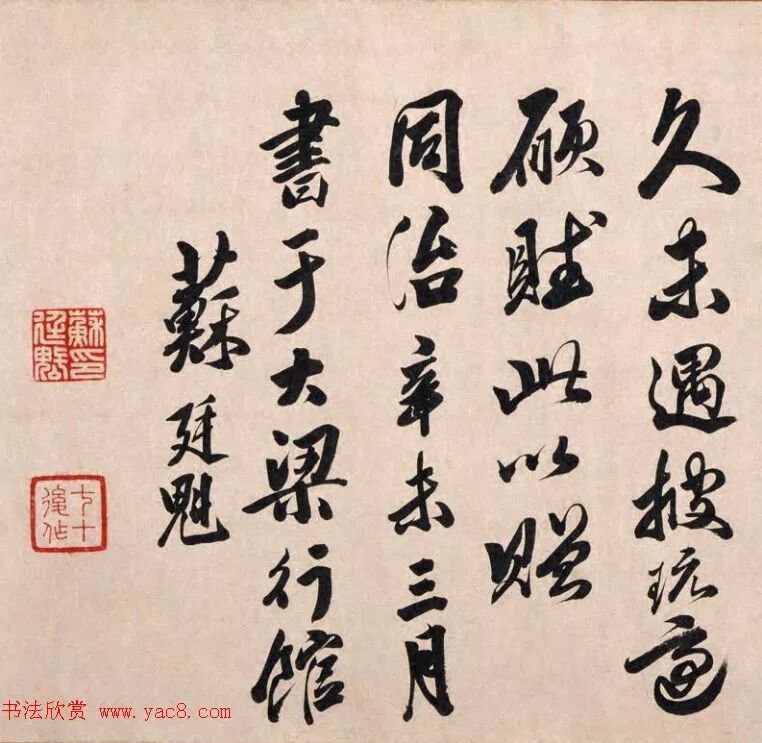 久未遇披玩適
願賦此以贈
同治辛未三月
書于大梁行館
蘇廷魁
蘇印廷魁
七十後作
书法欣赏 www.yac8.com